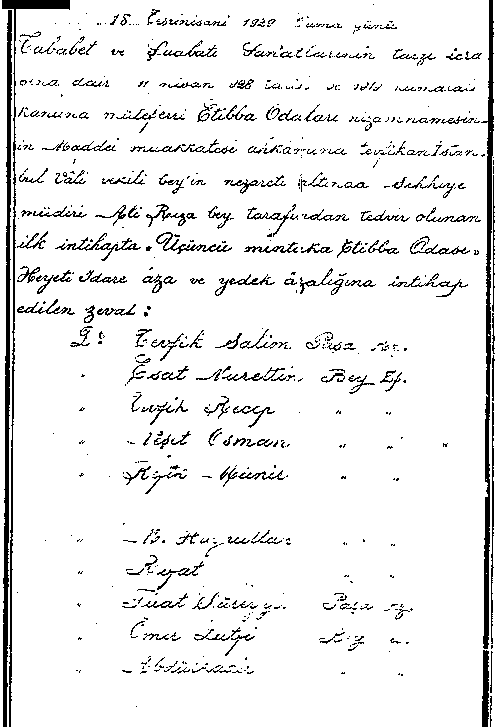 15 Teşrinisani 1929 Cuma günü
Tababet ve Şuabatı San'atlarının tarzı icra
sına dair 11 nisan 928 tarih ve 1219 numaralı
kanuna müteferri Etibba Odaları nizamnamesin-
in Maddei muakkatesi ahkâmına tevfikan İstan-
bul Vali vekili bey'in nezareti altında Sıhhiye
müdiri Ali Rıza bey tarafından tedvir olunan
ilk intihapta. Üçüncü mıntıka Etibba Odası.
Heyeti İdare âza ve yedek âzalığına intihap
edilen zevat:
Dr: Tevfik Salim Paşa Hz.
" Esat Nurettin Bey Ef.
" Tevfik Recep " "
" Neşet Osman " " "
" Münir " "
" " "
" " "
" Fuat Paşa Hz.
" Ömer Lutfi
" Abdülkadir " "